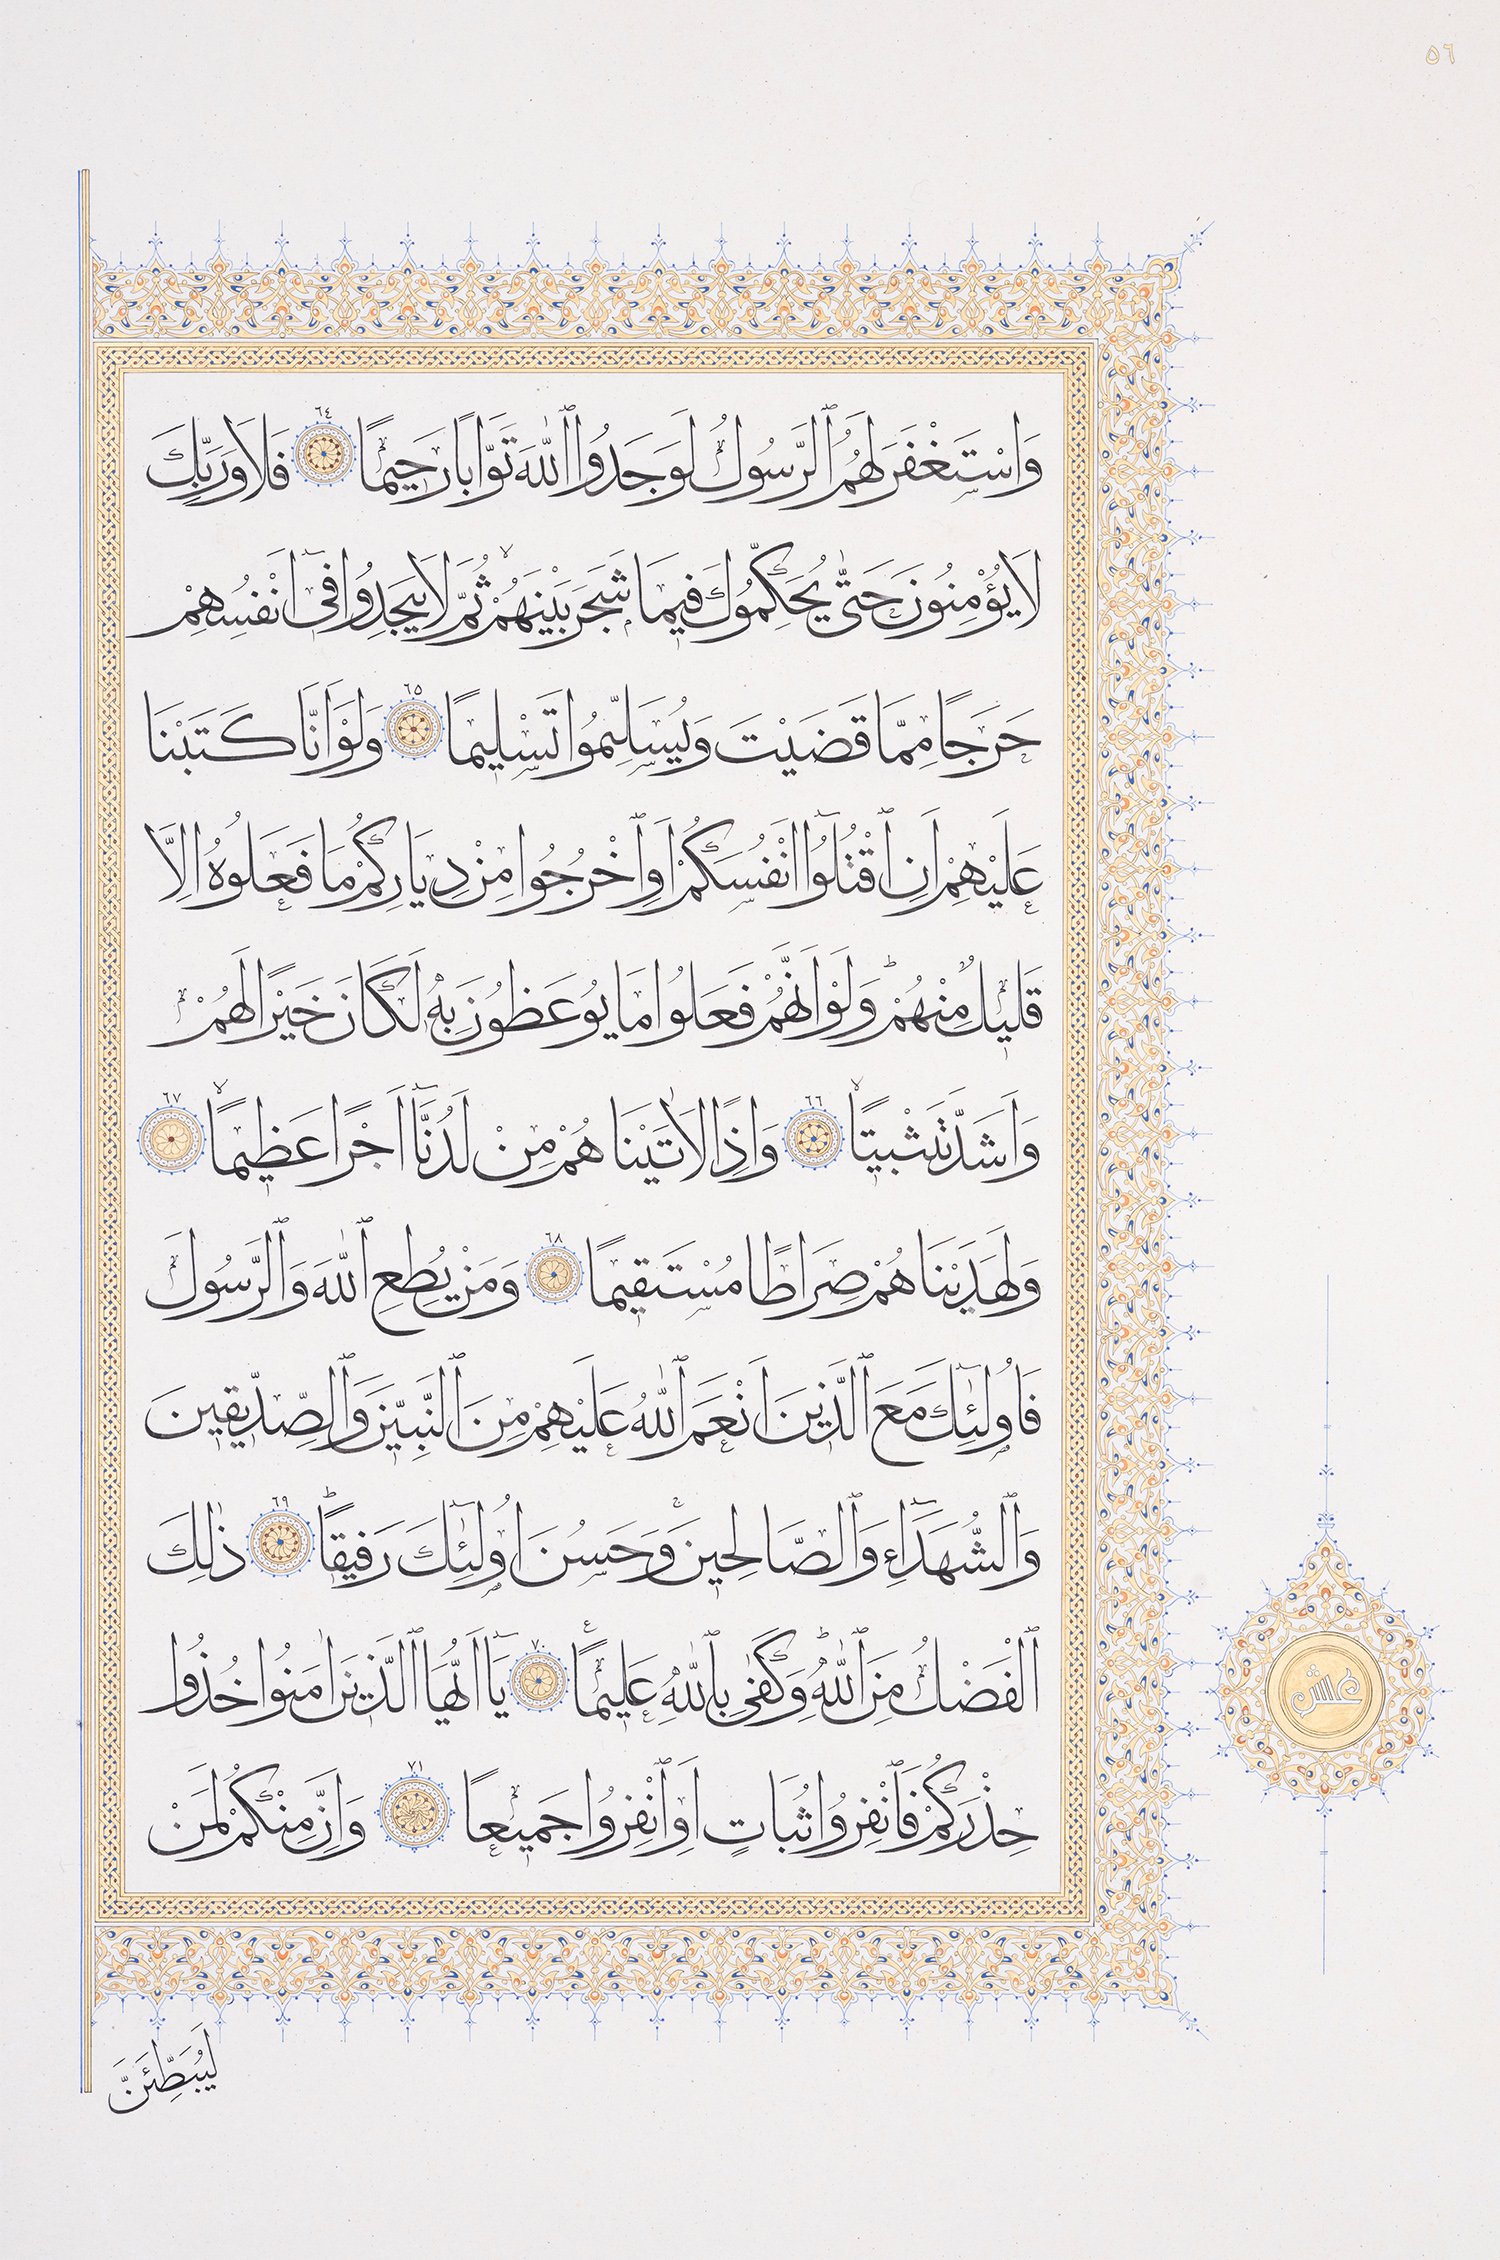 ٥٦
وَاسْتَغْفَرَ لَهُمُ ٱلرَّسُولُ لَوَجَدُوا ٱللّٰهَ تَوَّابًا رَحِيمًا ٦٤ فَلَا وَرَبِّكَ
لَا يُؤْمِنُونَ حَتّٰى يُحَكِّمُوكَ فِيمَا شَجَرَ بَيْنَهُمْ ثُمَّ لَا يَجِدُوا فِىٓ اَنْفُسِهِمْ
حَرَجًا مِمَّا قَضَيْتَ وَيُسَلِّمُوا تَسْلِيمًا ٦٥ وَلَوْ اَنَّا كَتَبْنَا
عَلَيْهِمْ اَنِ ٱقْتُلُوٓا اَنْفُسَكُمْ اَوِ ٱخْرُجُوا مِنْ دِيَارِكُمْ مَا فَعَلُوهُ اِلَّا
قَلِيلٌ مِنْهُمْ ۜ وَلَوْ اَنَّهُمْ فَعَلُوا مَا يُوعَظُونَ بِهٖ لَكَانَ خَيْرًا لَهُمْ
وَاَشَدَّ تَثْبِيتًا ٦٦ وَاِذًا لَاٰتَيْنَاهُمْ مِنْ لَدُنَّٓا اَجْرًا عَظِيمًا ٦٧
وَلَهَدَيْنَاهُمْ صِرَاطًا مُسْتَقِيمًا ٦٨ وَمَنْ يُطِعِ ٱللّٰهَ وَٱلرَّسُولَ
فَاُولٰٓئِكَ مَعَ ٱلَّذِينَ اَنْعَمَ ٱللّٰهُ عَلَيْهِمْ مِنَ ٱلنَّبِيّنَ وَٱلصِّدِّيقِينَ
وَٱلشُّهَدَٓاءِ وَٱلصَّالِحِينَ وَحَسُنَ اُولٰٓئِكَ رَفِيقًا ٦٩ ذٰلِكَ
ٱلْفَضْلُ مِنَ ٱللّٰهِ وَكَفٰى بِٱللّٰهِ عَلِيمًا ٧٠ يَٓا اَيُّهَا ٱلَّذِينَ اٰمَنُوا خُذُوا
حِذْرَكُمْ فَٱنْفِرُوا ثُبَاتٍ اَوِ ٱنْفِرُوا جَمِيعًا ٧١ وَاِنَّ مِنْكُمْ لَمَنْ
لَيُبَطِّئَنَّ
عشر